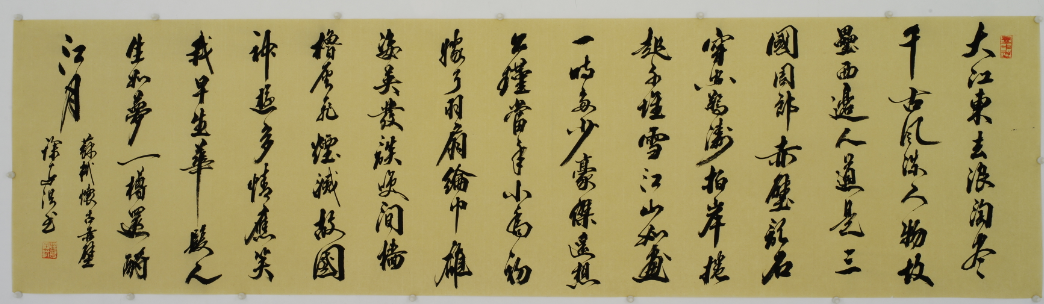 大江東去浪淘盡
千古風流人物故
壘西邊人道是三
國周郎赤壁亂石
穿空驚濤拍岸捲
起千堆雪江山如畫
一時多少豪傑遙想
公瑾當年小喬初
嫁了羽扇綸巾雄
姿英發談笑間檣
櫓灰飛煙滅故國
神遊多情應笑
我早生華髮人
生如夢一樽還酹
江月
蘇軾懷古赤壁